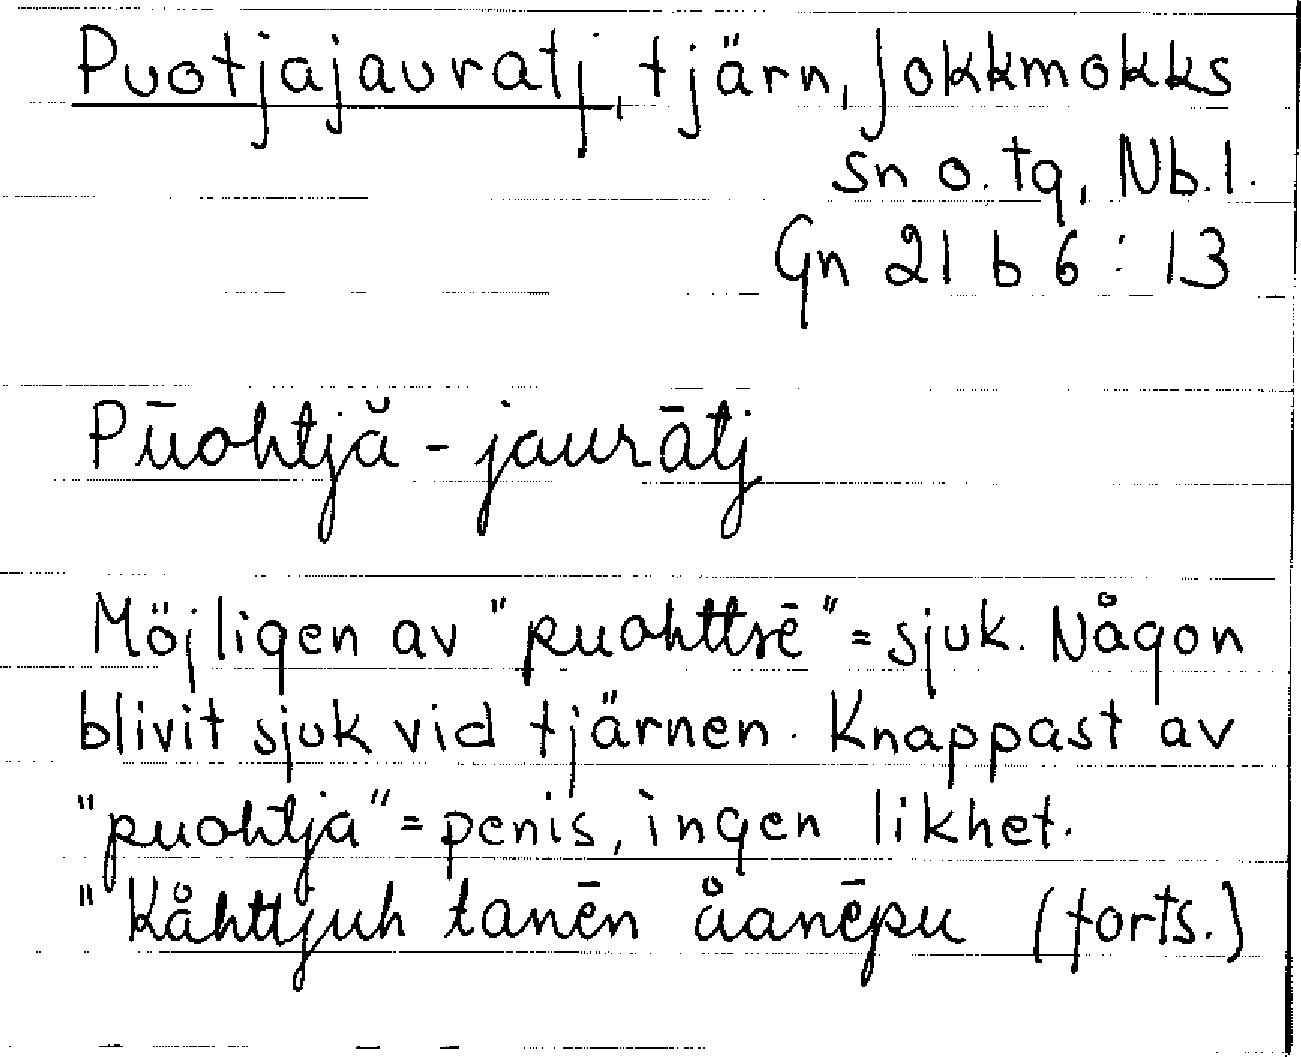 Puotjajauratj, tjärn, Jokkmokks
sn o. tg, Nb. l.
Gn 21 b 6 : 13
Pūohtjă - jaurātj
Möjligen av "puohttsē" = sjuk. Någon
blivit sjuk vid tjärnen. Knappast av
"puohtja" = penis, ingen likhet.
"Kåhttjuh tanēn åanēpu (forts.)